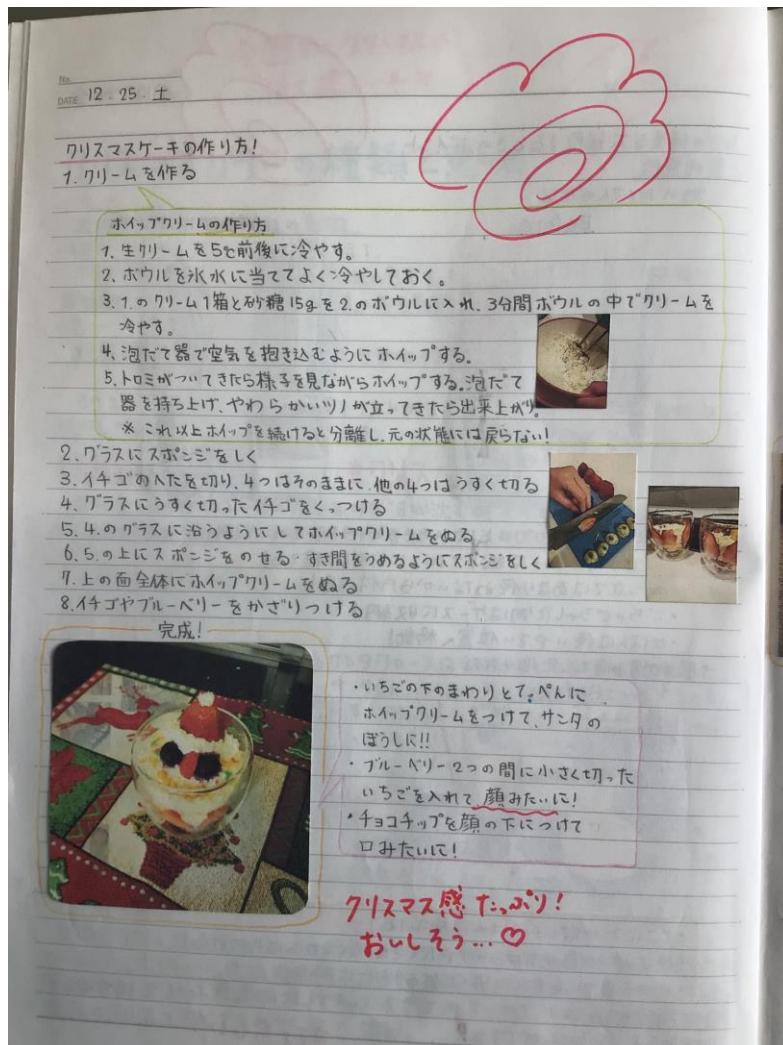 No.
DATE 12.25.土
クリスマスケーキの作り方!
1.クリームを作る
ホイップクリームの作り方
1.生クリームを5℃前後に冷やす。
2.ボウルを氷水に当ててよく冷やしておく。
3.1.のクリーム1箱と砂糖15gを2.のボウルに入れ、3分間ボウルの中でクリームを
冷やす。
4.泡だて器で空気を抱き込むようにホイップする。
5.トロミがついてきたら様子を見ながらホイップする。泡だて
器を持ち上げ、やわらかいツノが立ってきたら出来上がり。
※これ以上ホイップを続けると分離し、元の状態には戻らない!
2.グラスにスポンジをしく
3.イチゴのへたを切り、4つはそのままに、他の4つはうすく切る
4.グラスにうすく切ったイチゴをくっつける
5.4.のグラスに沿うようにしてホイップクリームをぬる
6.5.の上にスポンジをのせる・すき間をうめるようにスポンジをしく
7.上の面全体にホイップクリームをぬる
8.イチゴやブルーベリーをかざりつける
完成!
・いちごの下のまわりとてっぺんに
ホイップクリームをつけて、サンタの
ぼうしに!!
・ブルーベリー2つの間に小さく切った
いちごを入れて顔みたいに!
・チョコチップを顔の下につけて
口みたいに!
クリスマス感たっぷり!
おいしそう…♡